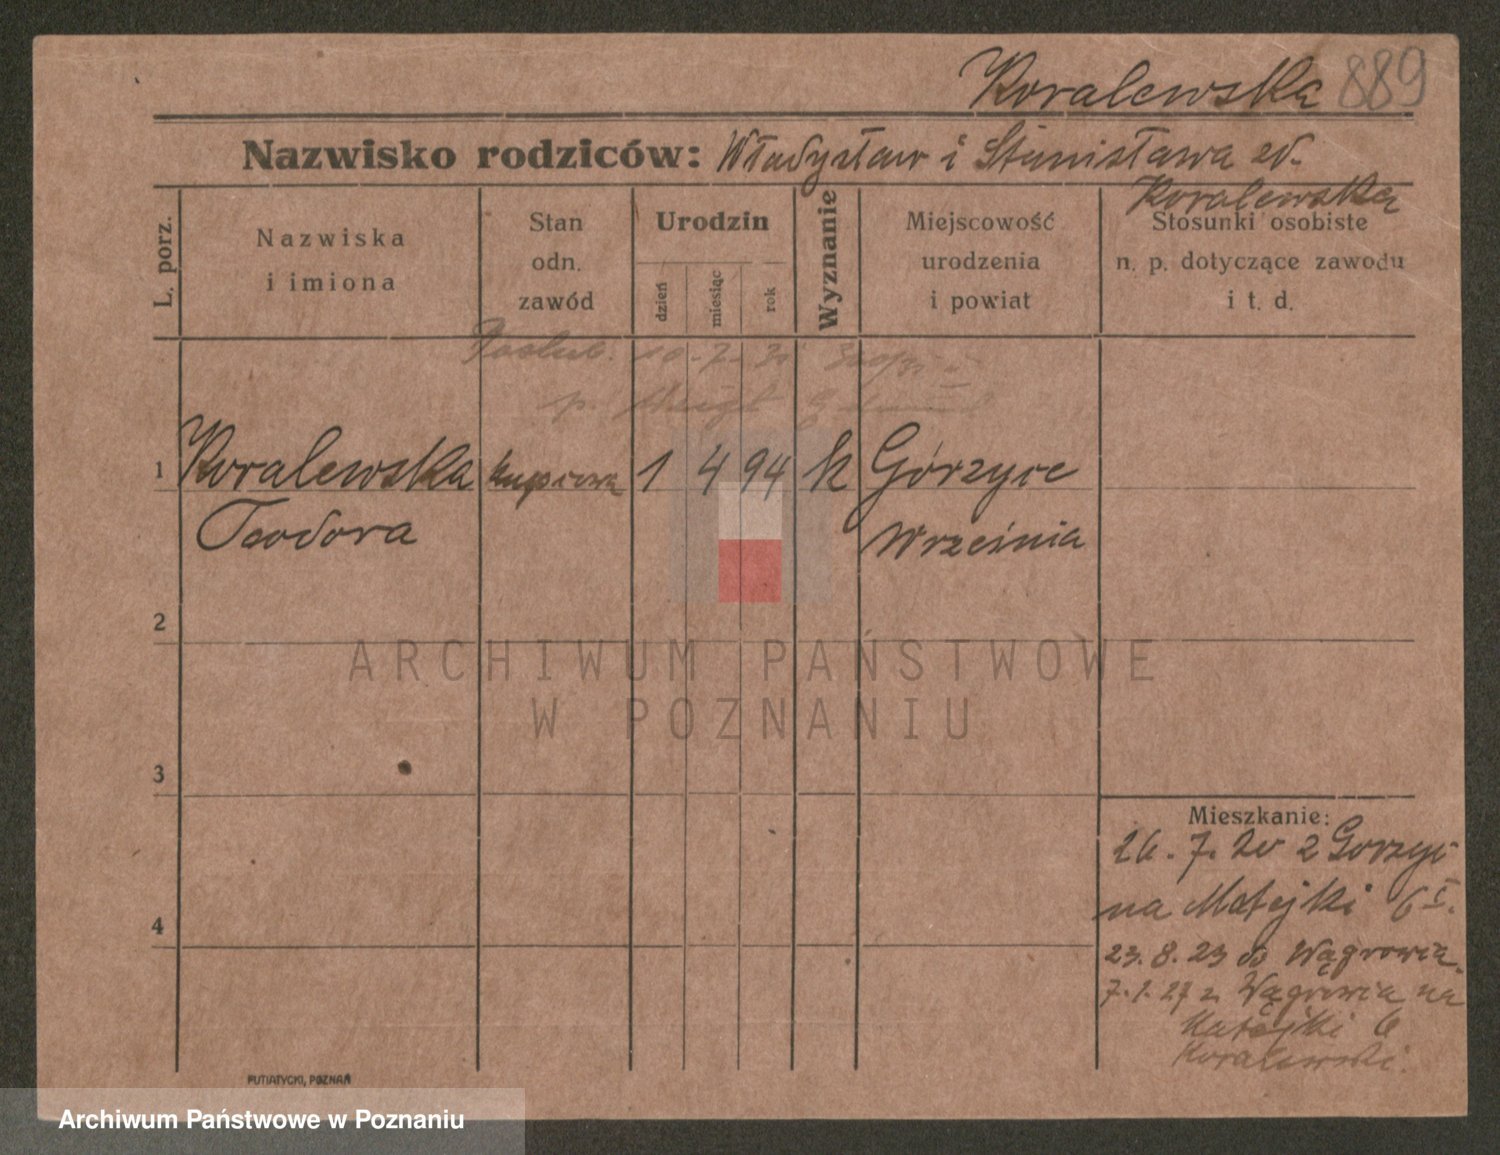 Koralewska 889
Nazwisko rodziców: Władysław i Stanisława zd.
Koralewska
L. porz.
Nazwiska
i imiona
Stan
odn.
zawód
Urodzin
dzień
miesiąc
rok
Wyznanie
Miejscowość
urodzenia
i powiat
Stosunki osobiste
n. p. dotyczące zawodu
i t. d.
10.7.
p.
1 Koralewska 1 4 94 k Górzyce
Teodora Września
2
ARCHIWUM PAŃSTWOWE
W POZNANIU
3
Mieszkanie:
26. 7. 20 z Gorzyc
na Matejki 6 I.
4
23. 8. 23 do Wągrowca.
7. 1. 27 z Wągrowca na
Matejki 6
Koralewski.
PUTIATYCKI, POZNAŃ
Archiwum Państwowe w Poznaniu